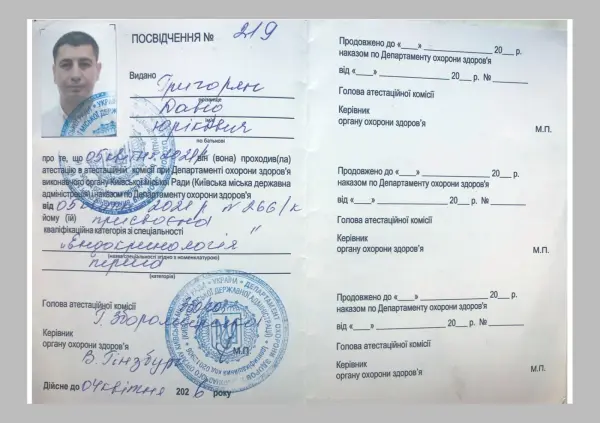 ПОСВІДЧЕННЯ № 219
Видано Григорян
прізвище
Давід
ім'я
Юрікович
по батькові
про те, що 05 квітня 2021р він (вона) проходив(ла)
атестацію в атестаційній комісії при Департаменті охорони здоров'я
виконавчого органу Київської міської Ради (Київська міська державна
адміністрація) наказом по Департаменту охорони здоров'я
від 05 квітня 2021р. № 266/к
йому (їй) присвоєна
кваліфікаційна категорія зі спеціальності
„Ендокринологія"
(назва спеціальності згідно з номенклатурою)
перша
(категорія)
Голова атестаційної комісії
Керівник
органу охорони здоров'я
В. Гінзбург
М.П.
Дійсне до 04 квітня 2026 року
Продовжено до «____» ____ 20__ р.
наказом по Департаменту охорони здоров'я
від «____» ____ 20__ р. № ____
Голова атестаційної комісії
Керівник
органу охорони здоров'я
М.П.
Продовжено до «____» ____ 20__ р.
наказом по Департаменту охорони здоров'я
від «____» ____ 20__ р. № ____
Голова атестаційної комісії
Керівник
органу охорони здоров'я
М.П.
Продовжено до «____» ____ 20__ р.
наказом по Департаменту охорони здоров'я
від «____» ____ 20__ р. № ____
Голова атестаційної комісії
Керівник
органу охорони здоров'я
М.П.